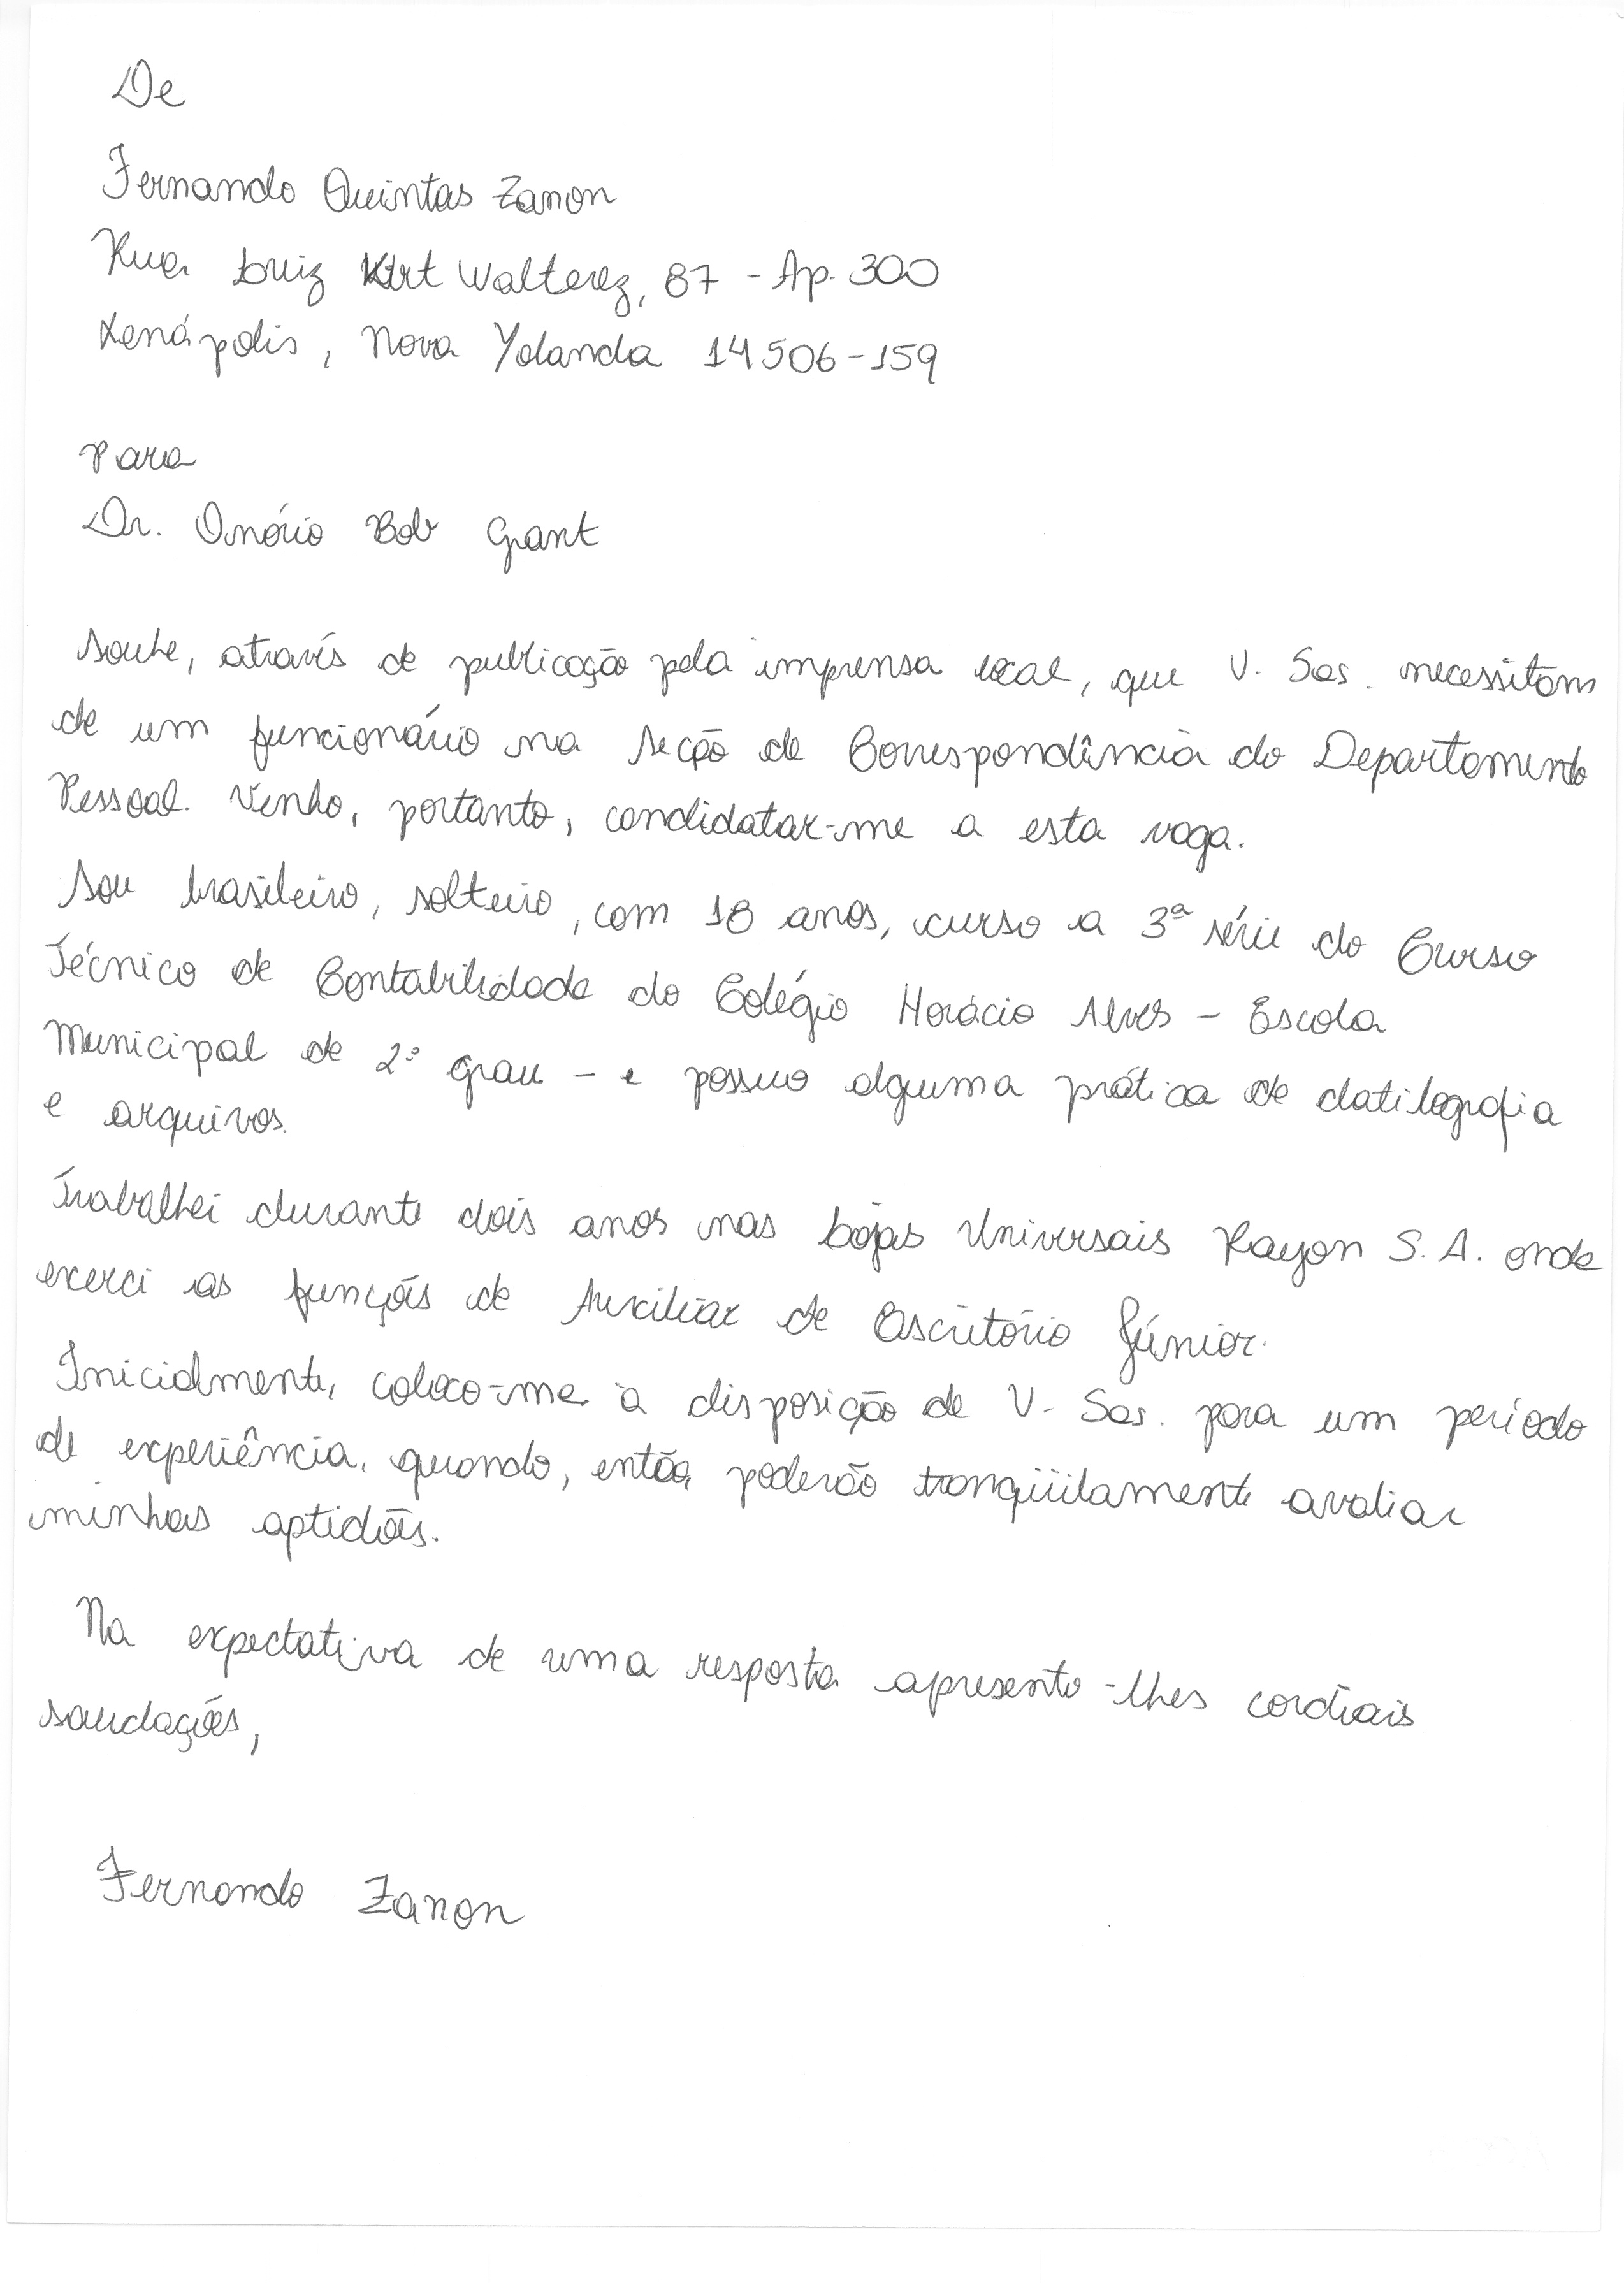 De
Fernando Quintas Zanon
Rua Luiz Kirt Walterez, 87 - Ap. 300
Xenápolis, Nova Yolanda 14506-159
Para
Dr. Onório Bob Grant
Soube, através de publicação pela imprensa local, que V. Sas. necessitam
de um funcionário na Seção de Correspondência do Departamento
Pessoal. Venho, portanto, candidatar-me a esta vaga.
Sou brasileiro, solteiro, com 18 anos, curso a 3ª série do Curso
Técnico de Contabilidade do Colégio Horácio Alves - Escola
Municipal de 2º grau - e possuo alguma prática de datilografia
e arquivos.
Trabalhei durante dois anos nas Lojas Universais Rayon S. A. onde
exerci as funções de Auxiliar de Escritório Júnior.
Inicialmente, coloco-me à disposição de V. Sas. para um período
de experiência, quando, então, poderão tranqüilamente avaliar
minhas aptidões.
Na expectativa de uma resposta apresento-lhes cordiais
saudações,
Fernando Zanon